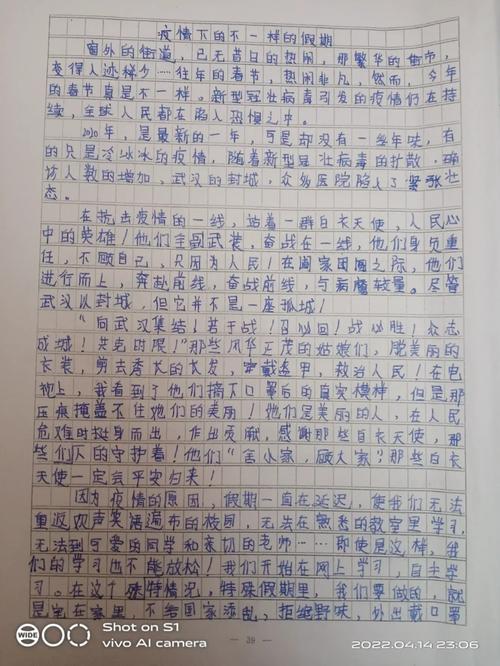 疫情下的不一样的假期
窗外的街道，已无昔日的热闹，那繁华的街节，
变得人迹稀少……往年的春节，热闹非凡，然而，今年
的春节真是不一样。新型冠壮病毒引发的疫情仍在持
续，全球人民都在陷入恐惧之中。
2020年，是最新的一年，可是却没有一些年味，有
的只是冷冰冰的疫情，随着新型冠壮病毒的扩散，确
诊人数的增加，武汉的封城，众多医院陷入了紧张壮
态。
在抗击疫情的一线，站着一群白衣天使，人民心
中的英雄！他们全副武装，奋战在一线，他们身负重
任，不顾自己，只因为人民！在阖家团圆之际，他们
进行而上，奔赴前线，奋战前线，与病魔较量。尽管
武汉以封城，但它并不是一座孤城！
“向武汉集结！若干战！召以回！战以胜！众志
成城！共克时限！”那些风华正茂的姑娘们，脱美丽的
长装，剪去秀长的长发，穿戴盔甲，救治人民！在电
视上，我看到了他们摘下口罩后的真实模样，但是那
压痕掩盖不住她们的美丽！她们是美丽的人，在人民
危难时挺身而出，作出贡献，感谢那些白衣天使，那
些们下的守护着！他们“舍小家，顾大家”那些白衣
天使一定会平安归来！
因为疫情的原因，假期一直在延迟，使我们无法
重返欢声笑满遍布的校园，无法在熟悉的教室里学习，
无法到可爱的同学和亲切的老师……即使是这样，我
们的学习也不能放松！我们开始在网上学习，自主学
习。在这个特情况，特殊假期里，我们要做的，就
是宅在家里，不给国家添乱，拒绝野味，外出戴口罩
— 39 —
WIDE
Shot on S1
vivo AI camera
2022.04.14 23:06